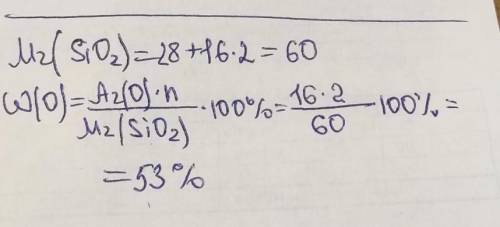 Mr(SiO₂)=28+16·2=60
W(O)=Ar(O)·n/Mr(SiO₂)·100%=16·2/60·100%=
=53%